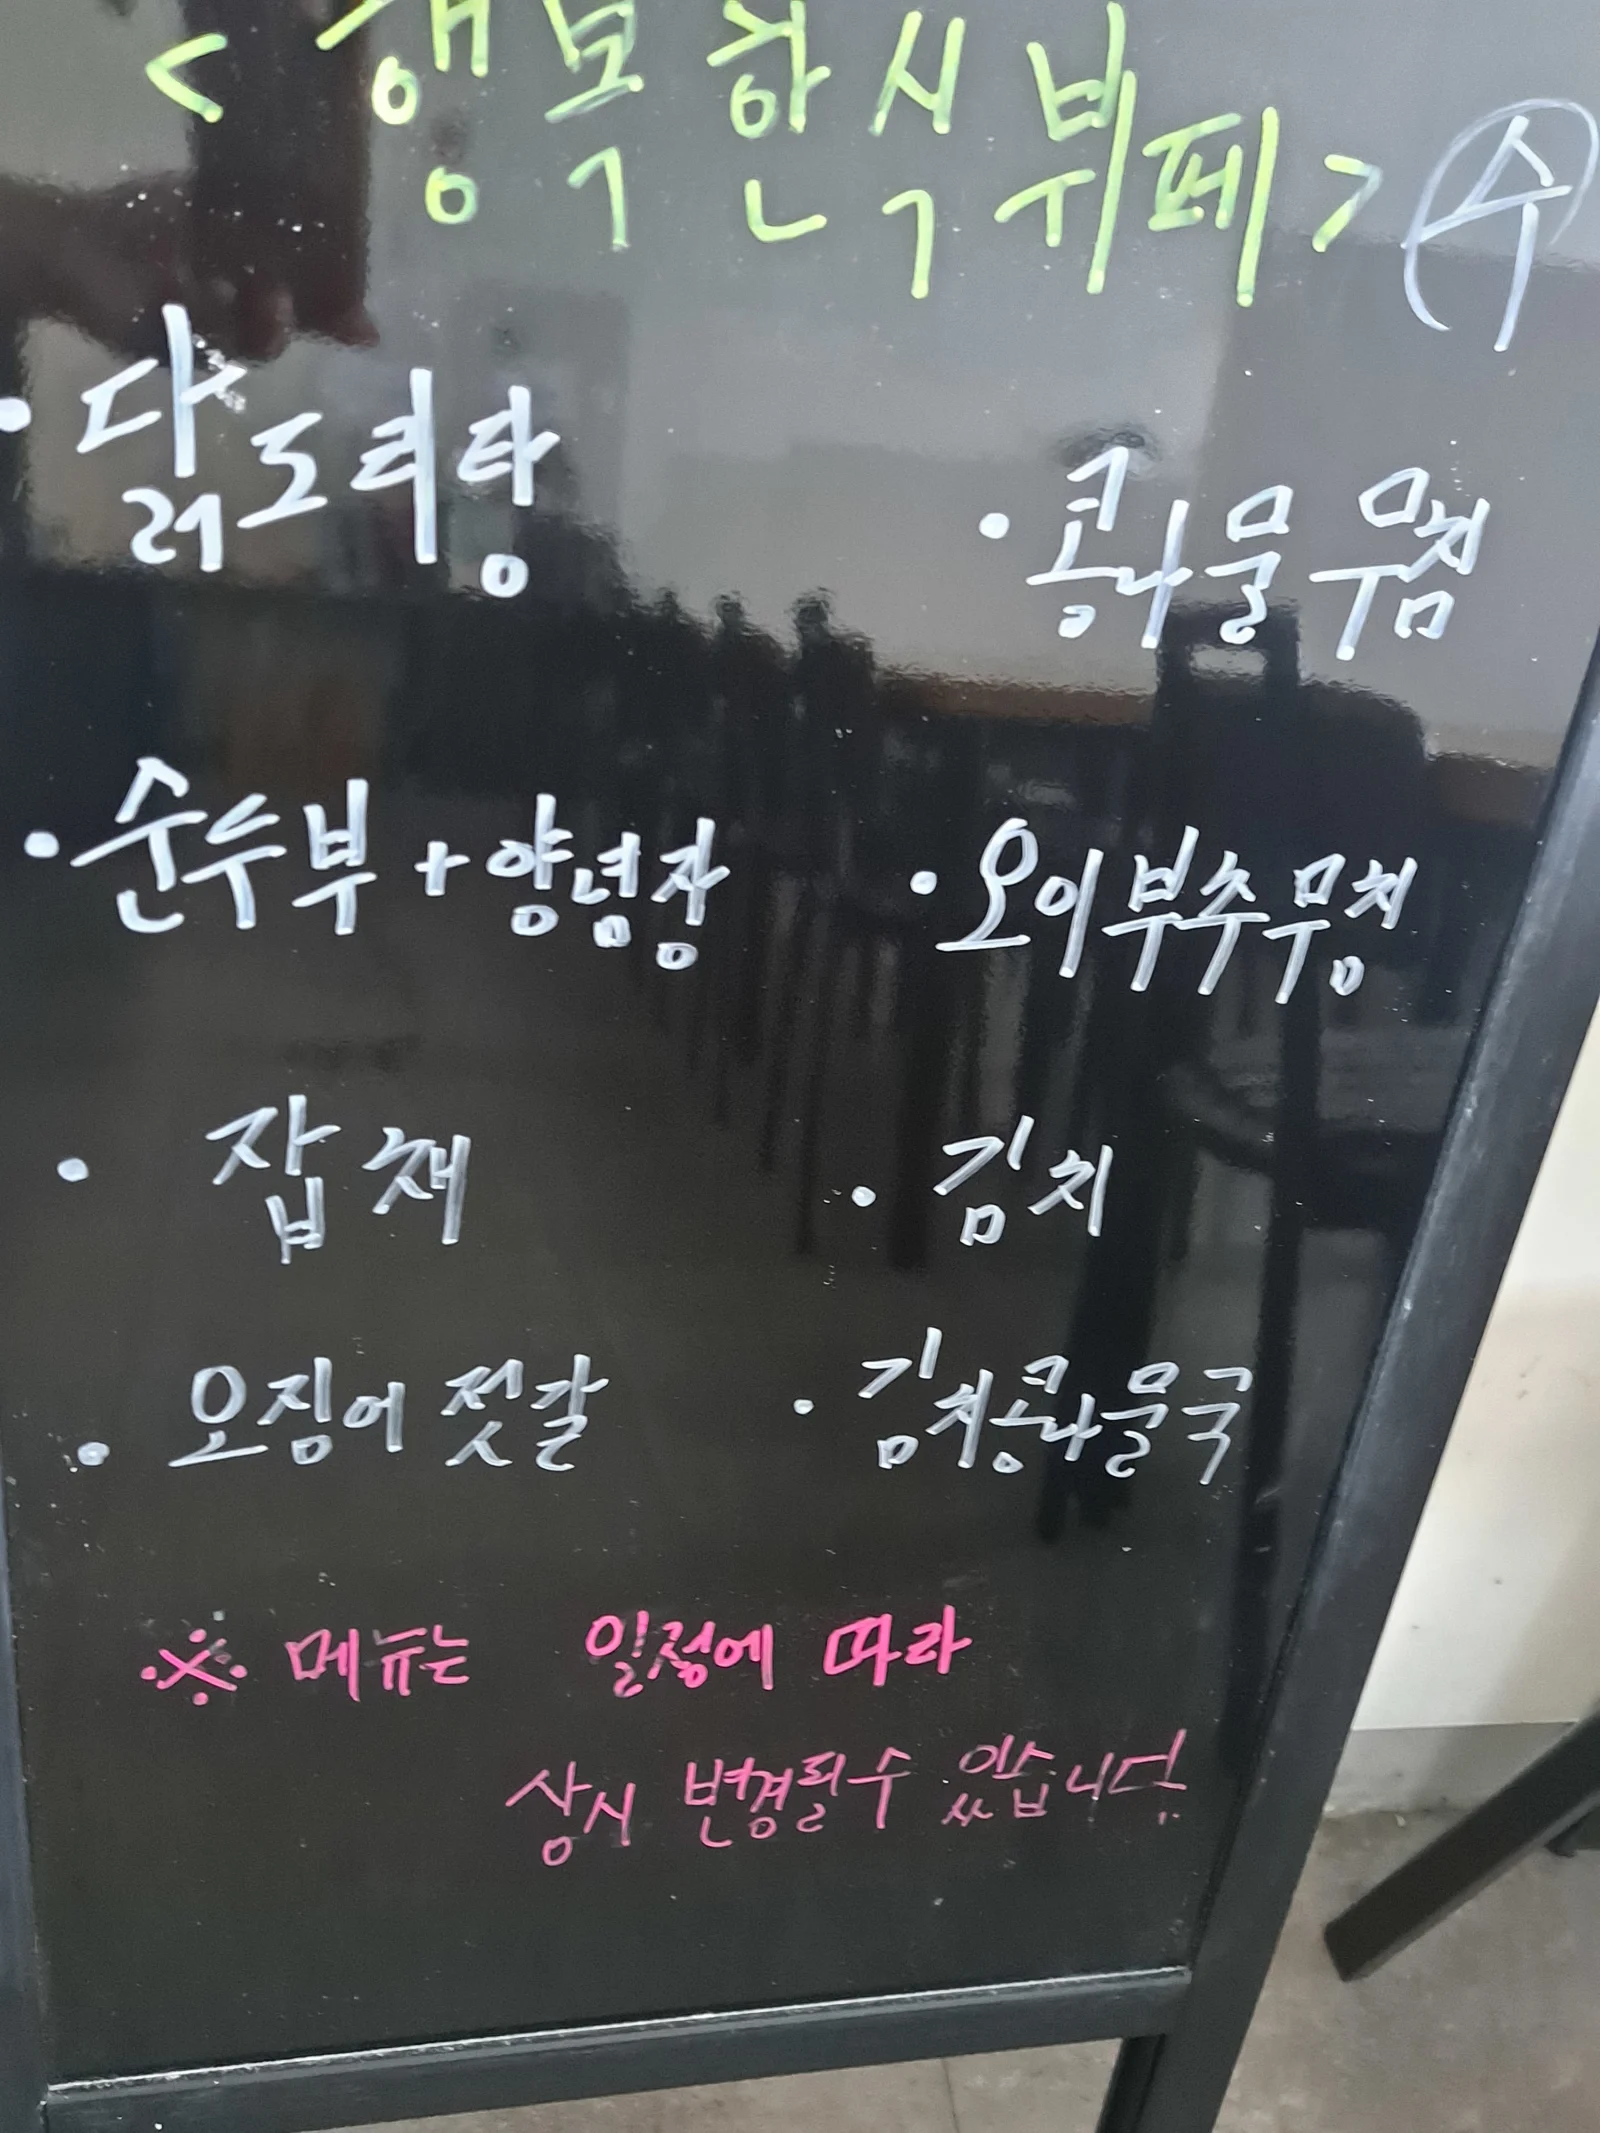 <행복한식뷔페> 수
· 닭도리탕
· 콩나물무침
· 순수부+양념장
· 오이부추무침
· 잡채
· 김치
· 오징어 젓갈
· 김치콩나물국
※ 메뉴는 일정에 따라
상시 변경될수 있습니다.